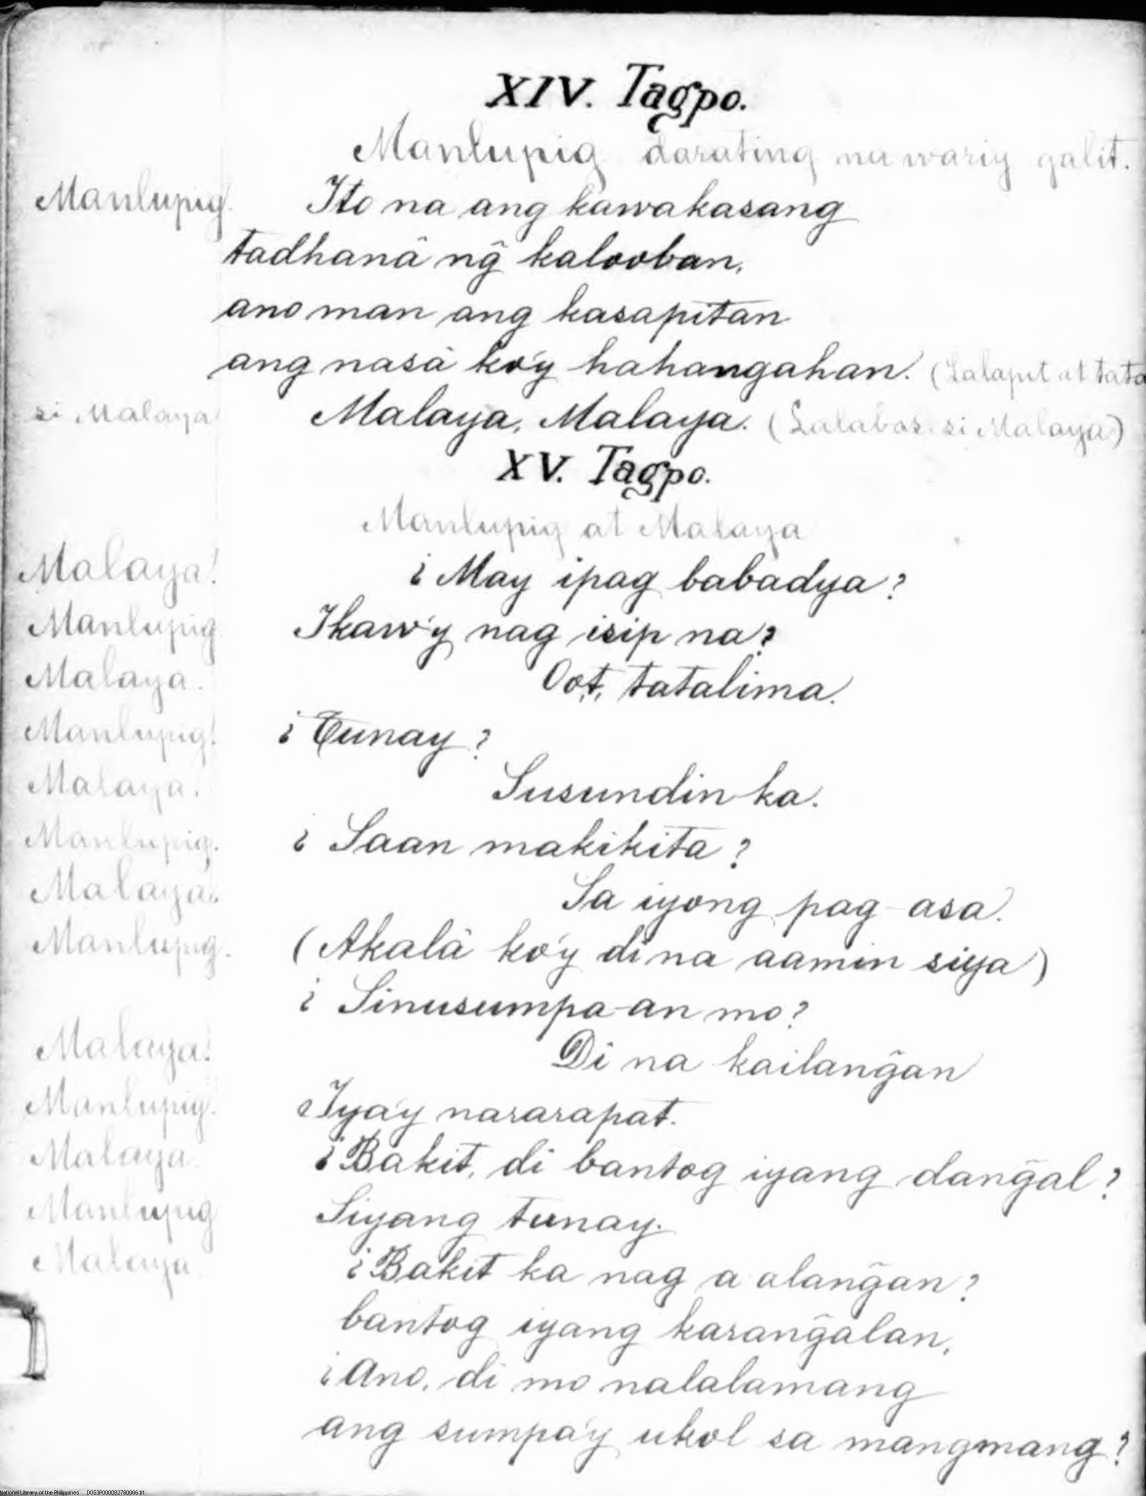 XIV. Tagpo.
Manlupig darating na wariy galit.
Manlupig. Ito na ang kawakasang
tadhanâ ng̃ kalooban,
ano man ang kasapitan
ang nasà ko'y hahangahan. (Lalapit at tata
si Malaya Malaya, Malaya. (Lalabas si Malaya)
XV. Tagpo.
Manlupig at Malaya
Malaya! ¿May ipag babadya?
Manlupig Ikaw'y nag isip na?
Malaya. Oot, tatalima.
Manlupig! ¿Tunay?
Malaya. Susundin ka.
Manlupig. ¿Saan makikita?
Malaya. Sa iyong pag-asa.
Manlupig. (Akalà ko'y di na aamin siya)
¿Sinusumpa-an mo?
Malaya! Di na kailang̃an
Manlupig. Iya'y nararapat.
Malaya. ¿Bakit, di bantog iyang dang̃al?
Manlupig Siyang tunay.
Malaya ¿Bakit ka nag a alang̃an?
bantog iyang karang̃alan,
¿Ano, di mo nalalamang
ang sumpa'y ukol sa mangmang?
National Library of the Philippines